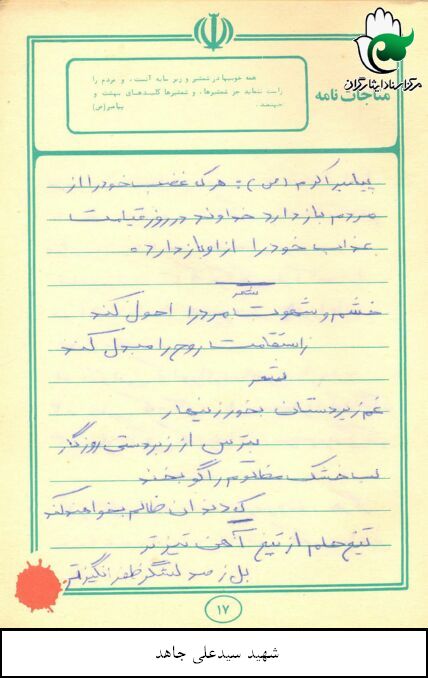 مرکز اسناد ایثارگران
مناجات نامه
همه خوبیها در شمشیر و زیر سایه آنست، و مردم را
راست ننماید جز شمشیرها، و شمشیرها کلیدهای بهشت و
جهنمند. پیامبر (ص)
پیامبر اکرم (ص): هرکه غضب خود را از
مردم باز دارد خداوند در روز قیامت
عذاب خود را از او باز دارد.
شعر
خشم و شهوت مرد را احول کند
ز استقامت روح را مبدل کند
شعر
غم زیردستان بخور زینهار
بترس از زبردستی روزگار
لب خشک مظلوم را گو بخند
که دندان ظالم بخواهند کند
تیغ حلم از تیغ آهن تیزتر
بل ز صد لشگر ظفر انگیزتر
۱۷
شهید سیدعلی جاهد